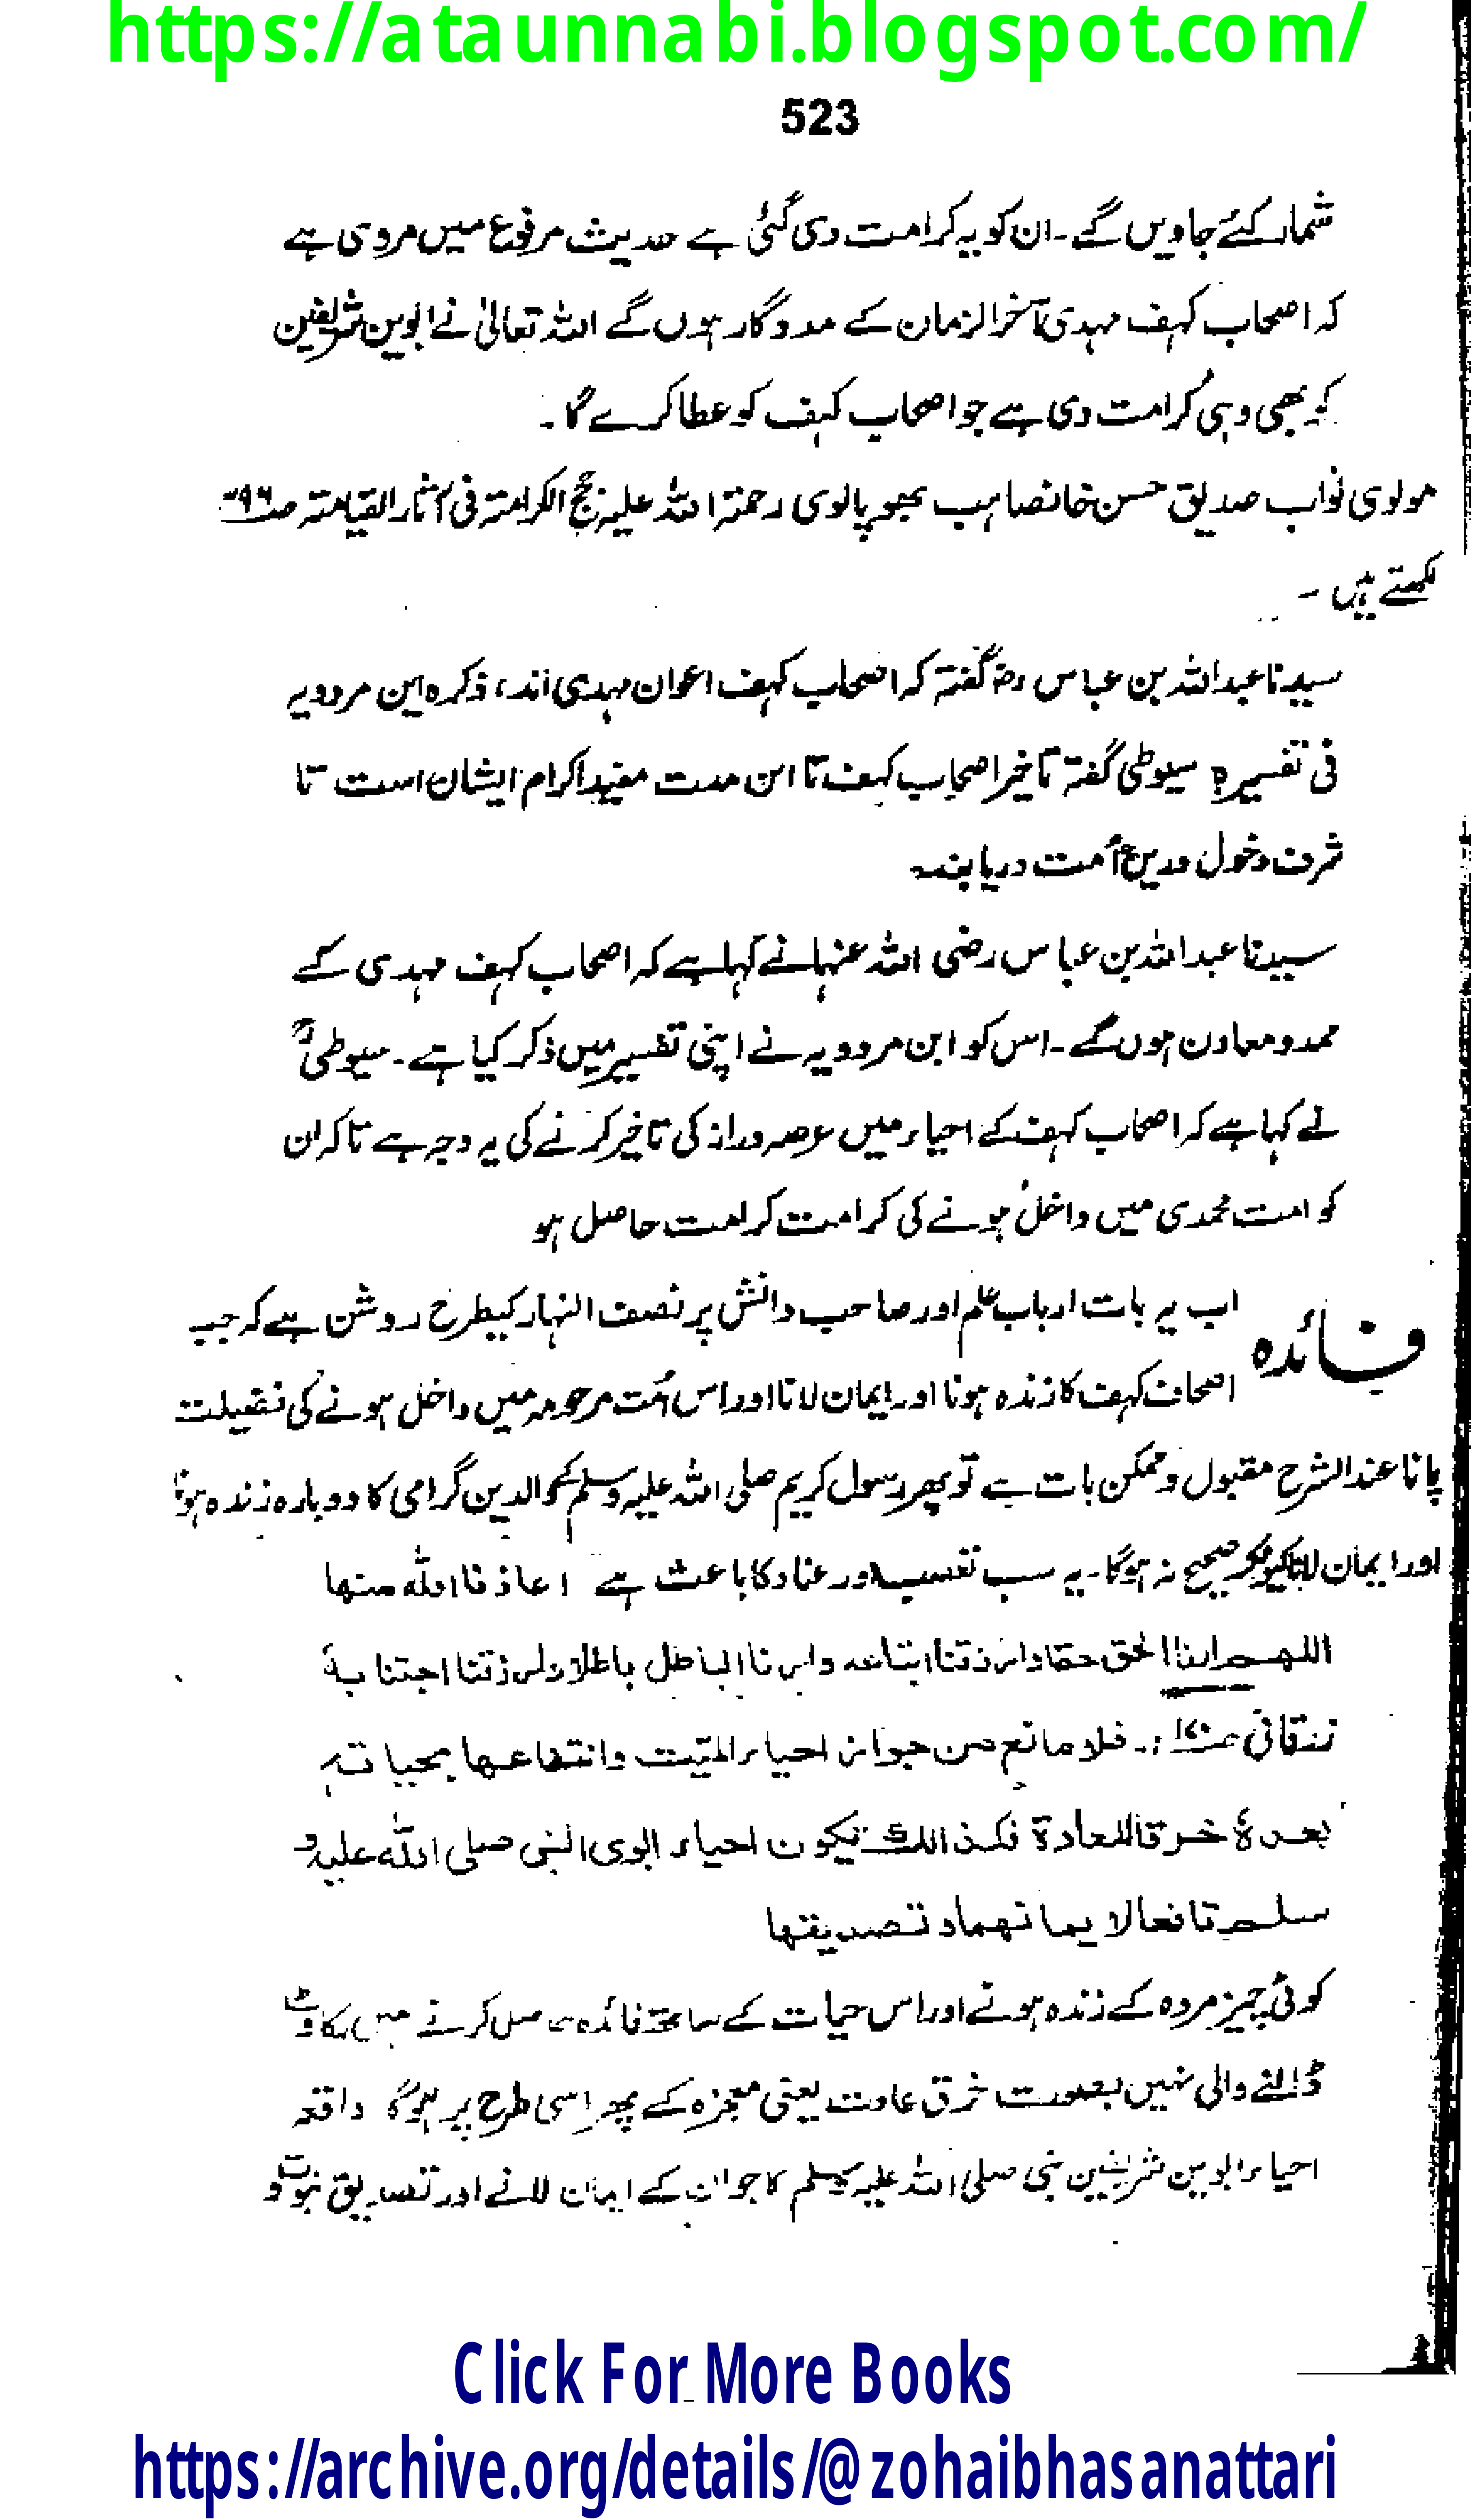 https://ataunnabi.blogspot.com/
523
شمار کئے جاویں گے۔ ان کو یہ کرامت دی گئی ہے حدیث مرفوع میں مروی ہے
کہ اصحاب کہف مہدی آخرالزمان کے مددگار ہوں گے اللہ تعالیٰ نے ابوین شریفین
کو بھی وہی کرامت دی ہے جو اصحاب کہف کو عطا کرے گا۔
مولوی نواب صدیق حسن خانصاحب بھوپالوی رحمۃ اللہ علیہ حجج الکرامتہ فی آثار القیامتہ
لکھتے ہیں ۔
سیدنا عبداللہ بن عباس رضہ گفتہ کہ اصحاب کہف اعوان مہدی اند، ذکرہ ابن مردویہ
فی تفسیرہ سیوطی گفتہ تاخیر اصحاب کہف تا این مدت مفید اکرام ایشان است تا
شرف دخول دریں اُمت دریابند۔
سیدنا عبداللہ بن عباس رضی اللہ عنہما نے کہا ہے کہ اصحاب کہف مہدی کے
ممد و معاون ہوں گے ۔ اس کو ابن مردویہ نے اپنی تفسیر میں ذکر کیا ہے ۔ سیوطیؒ
نے کہا ہے کہ اصحاب کہف کے احیاء میں عرصہ دراز کی تاخیر کرنے کی یہ وجہ ہے تاکہ ان
کو امت محمدی میں داخل ہونے کی کرامت کرامت حاصل ہو
فائدہ اب یہ بات ارباب علم اور صاحب دانش پر نصف النہار کیطرح روشن ہے کہ جب
اصحاف کہف کا زندہ ہونا اور ایمان لانا اور اس اُمت مرحومہ میں داخل ہونے کی فضیلت
پانا عند الشرح مقبول و ممکن بات ہے تو پھر رسول کریم صلی اللہ علیہ وسلم کے والدین گرامی کا دوبارہ زندہ ہونا
اور ایمان لانا کیونکر صحیح نہ ہوگا۔ یہ سب تعصب اور عناد کا باعث ہے اعاذنا اللہ منھا
اللھم ارنا الحق حقا وارزقنا اتباعہ وارنا الباطل باطلا وارزقنا اجتنابہ
زرقانی :۔ فلا مانع من جواز احیاء المیّت وانتفاعھا بحیاتہ
بعدہٗ خرقا للعادۃ فکذالک یکون احیاء ابوی النبی صلی اللہ علیہ و
سلم نافعا لایمانھما و تصدیقھا
کوئی چیز مردہ کے زندہ ہونے اور اس حیات کے ساتھ فائدہ حاصل کرنے میں رکاوٹ
ڈالنے والی نہیں بصورت خرق عادت یعنی معجزہ کے پھر اسی طرح پر ہوگا واقعہ
احیاء ابوین شریفین نبی صلی اللہ علیہ وسلم کا جو ان کے ایمان لانے اور تصدیق نبوت و
Click For More Books
https://archive.org/details/@zohaibhasanattari